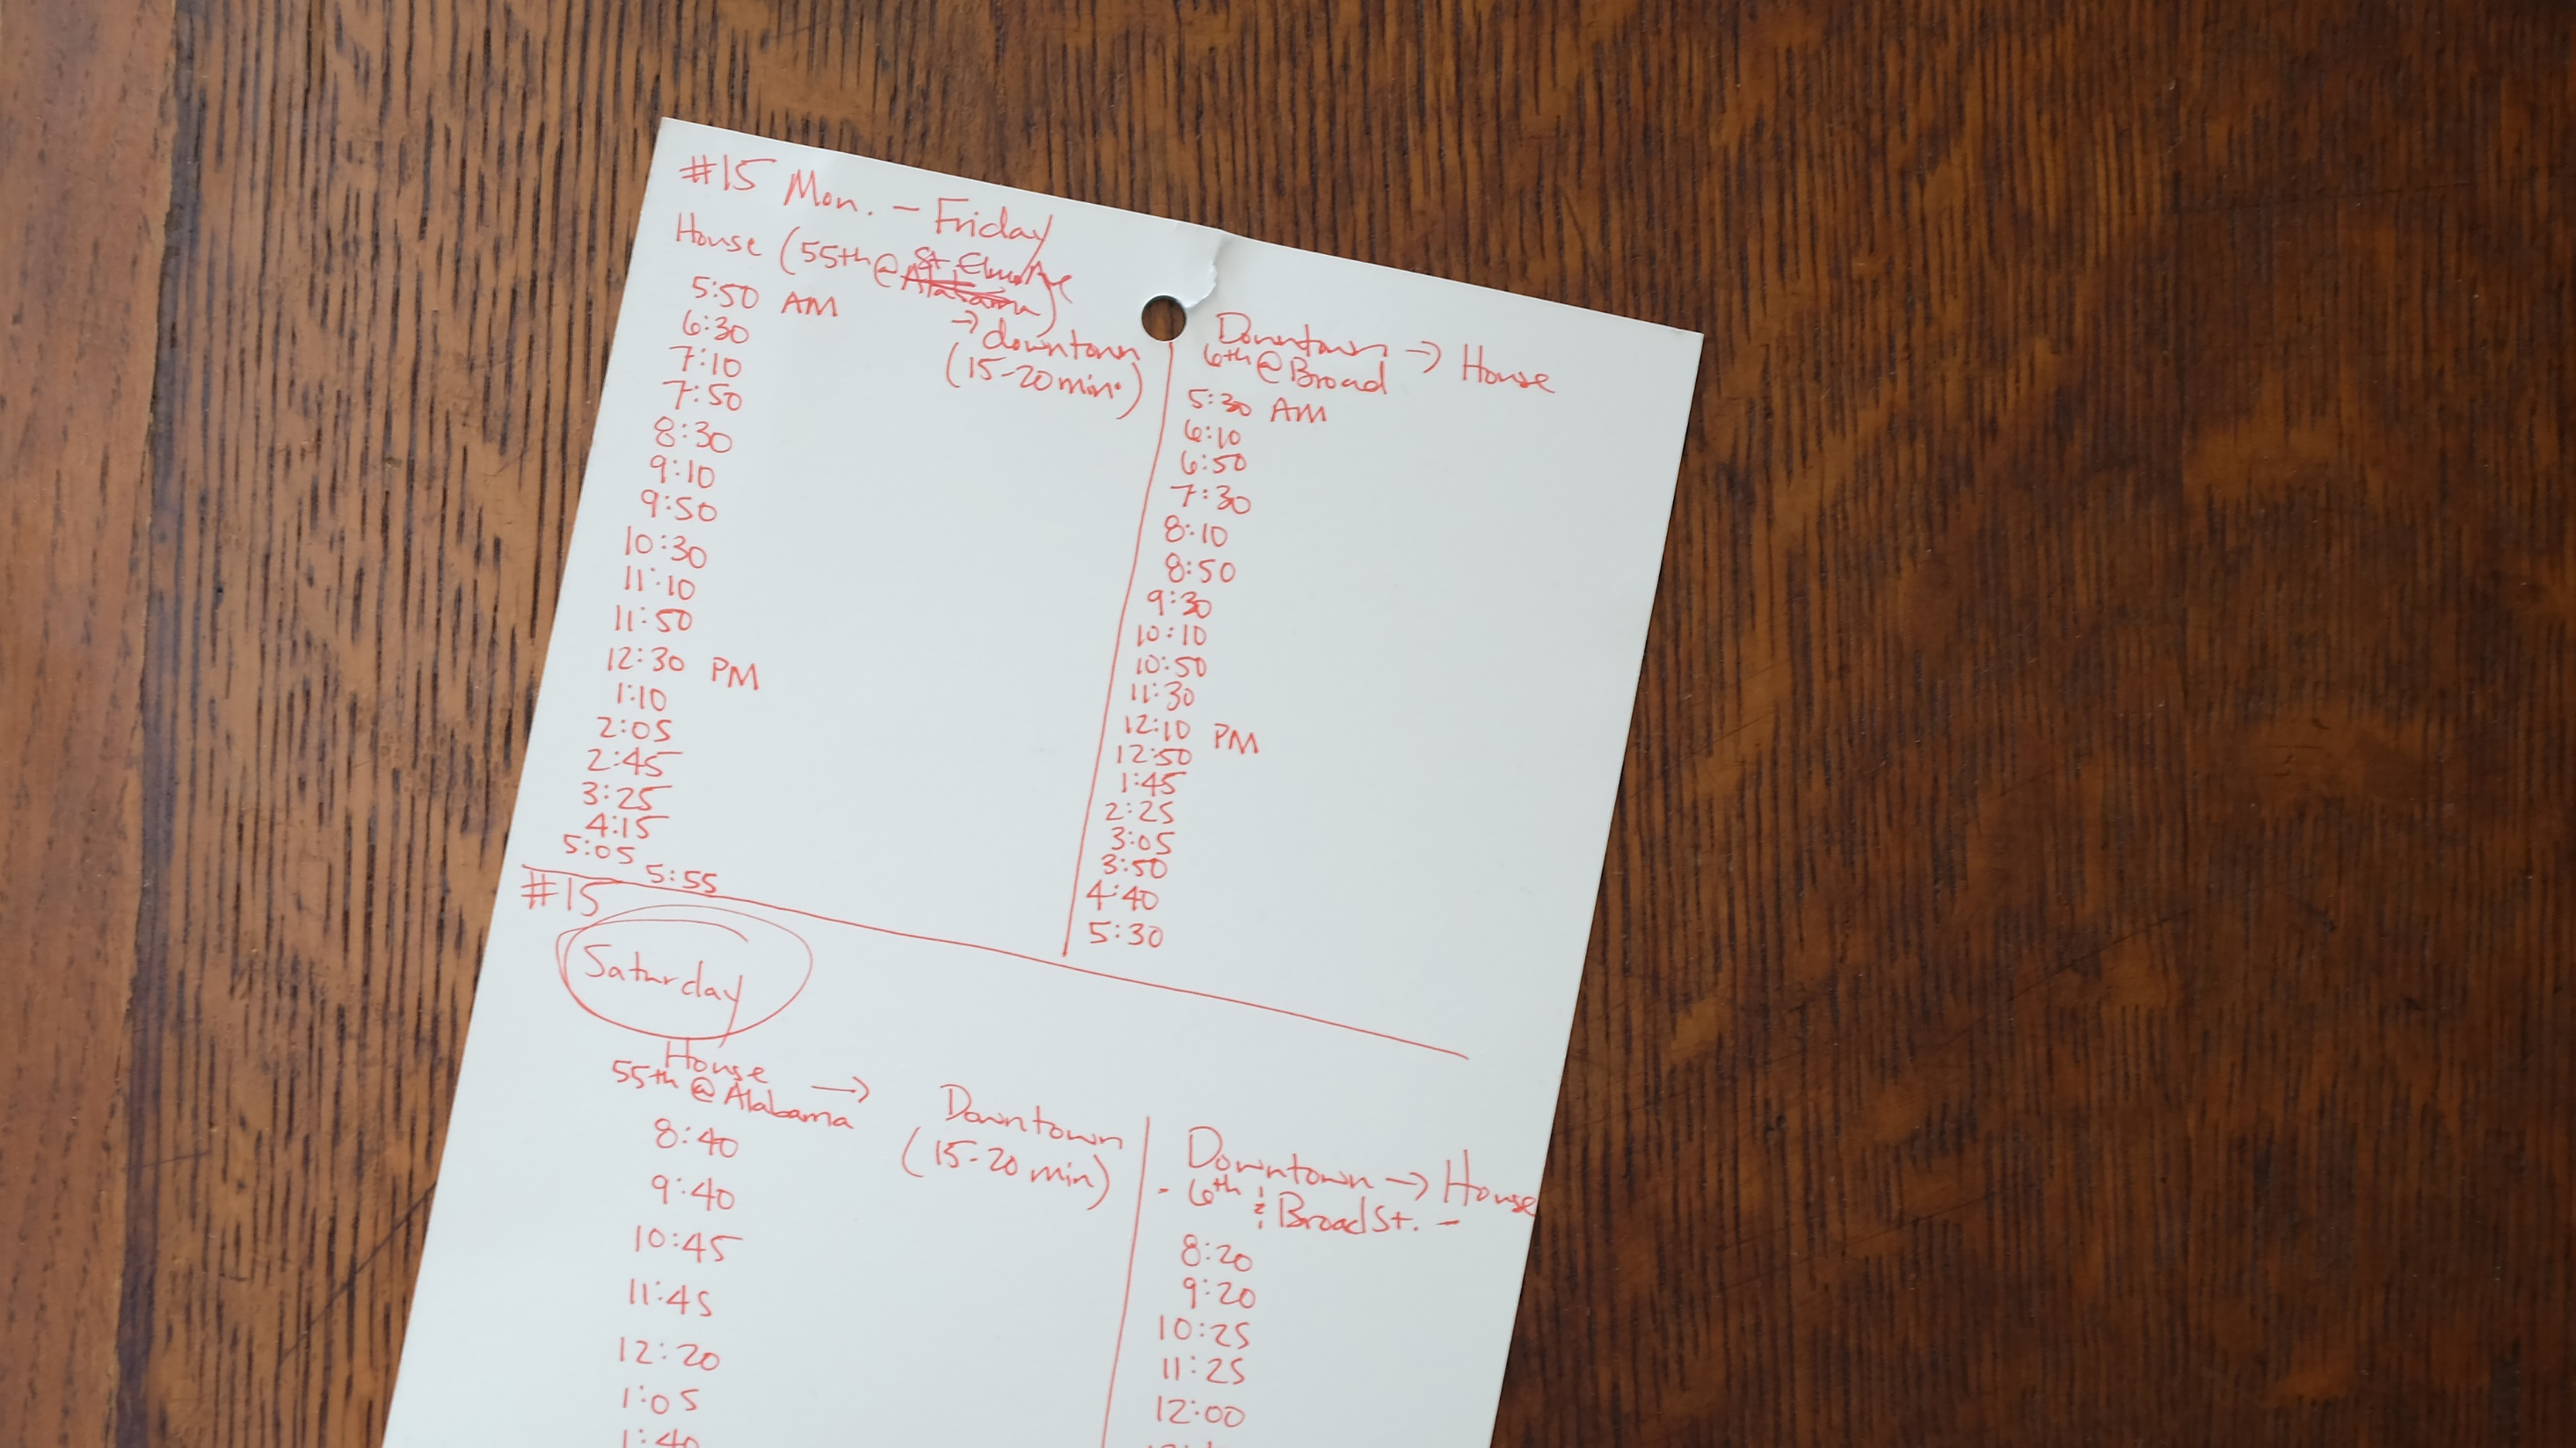 #15 Mon. - Friday
House (55th @ St. Elmo Ave
Alabama)
→ downtown
(15-20 min.)
5:50 AM
6:30
7:10
7:50
8:30
9:10
9:50
10:30
11:10
11:50
12:30 PM
1:10
2:05
2:45
3:25
4:15
5:05
5:55
Downtown → House
6th @ Broad
5:30 AM
6:10
6:50
7:30
8:10
8:50
9:30
10:10
10:50
11:30
12:10 PM
12:50
1:45
2:25
3:05
3:50
4:40
5:30
#15
Saturday
House
55th @ Alabama → Downtown
(15-20 min)
8:40
9:40
10:45
11:45
12:20
1:05
1:40
Downtown → House
- 6th & Broad St. -
8:20
9:20
10:25
11:25
12:00